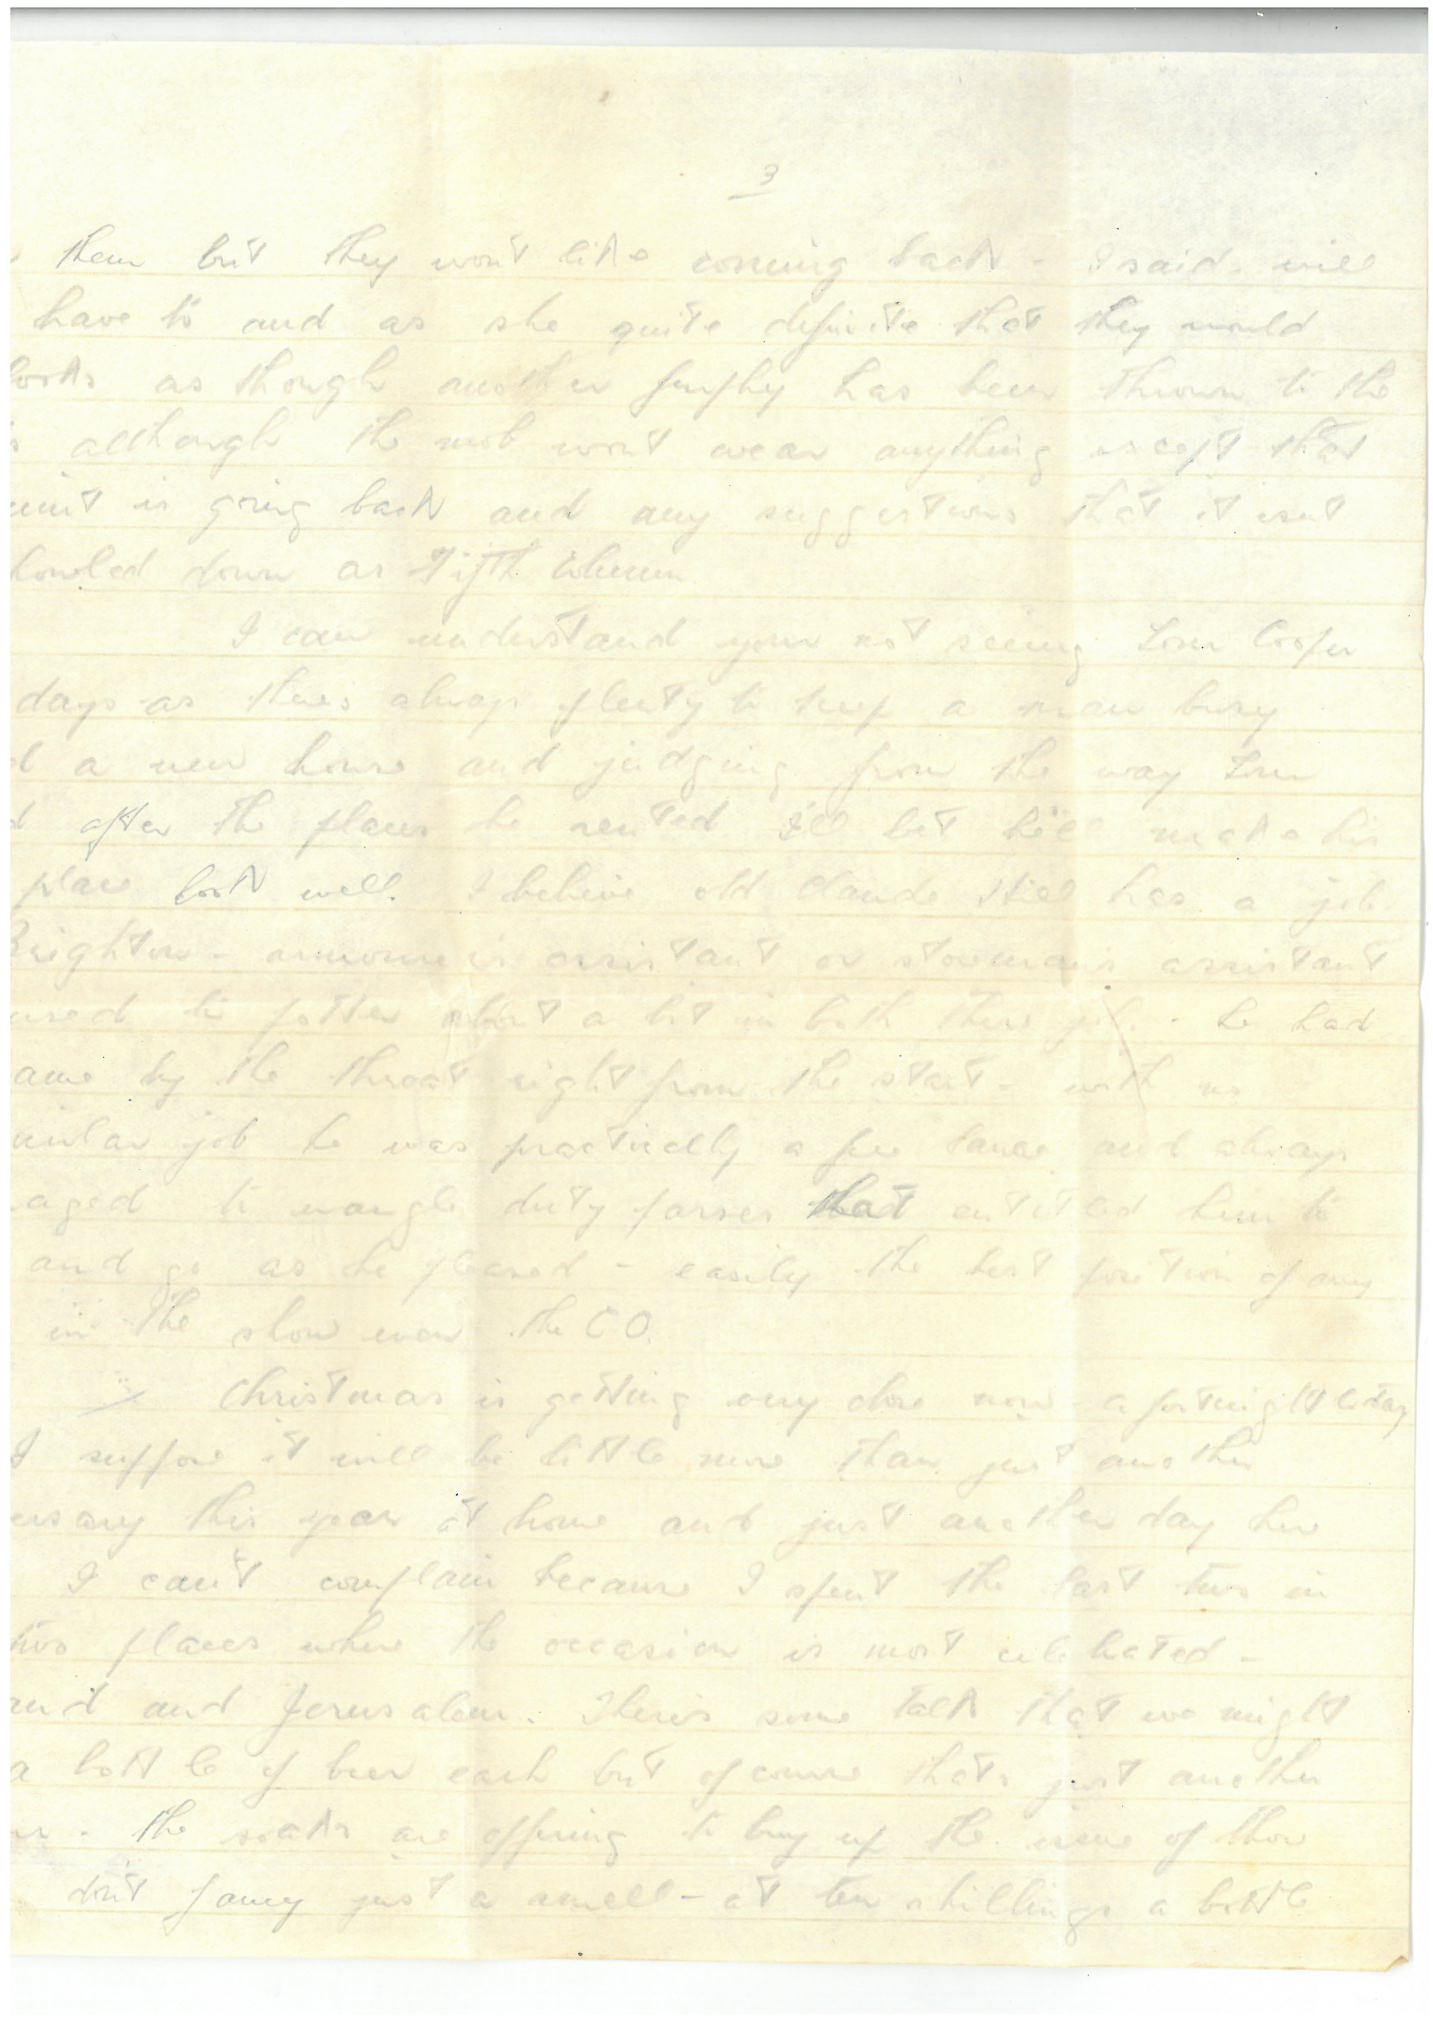 3
them but they won't like coming back - I said will
have to and as she quite definite that they would
looks as though another furphy has been thrown to the
although the mob won't wear anything except that
unit is going back and any suggestions that it isnt
howled down as Fifth Column
I can understand your not seeing Tom Cooper
days as there's always plenty to keep a man busy
a new house and judging from the way Tom
after the places he rented I'll bet he'll make his
place look well. I believe old Claude still has a job
Brighton - armourer's assistant or storeman's assistant
used to potter about a bit in both these jobs - he had
ame by the throat right from the start - with no
icular job he was practically a free lance and always
aged to wangle duty passes that entitled him to
and go as he pleased - easily the best position of any
in the show even the C O.
Christmas is getting very close now - a fortnight today
I suppose it will be little more than just another
ersary this year at home and just another day here
I can't complain because I spent the last two in
two places where the occasion is most celebrated -
and and Jerusalem. There's some talk that we might
a bottle of beer each but of course thats just another
the soaks are offering to buy up the issue of those
don't fancy just a smell - at ten shillings a bottle